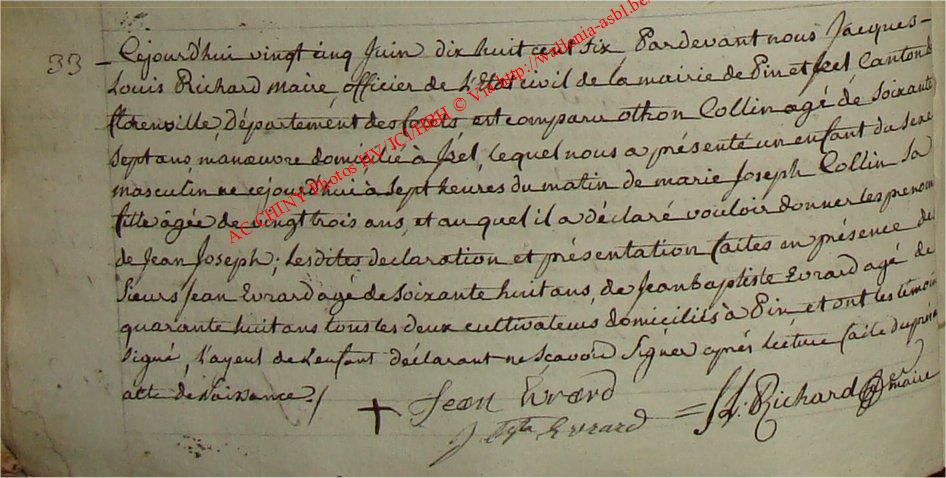 33 - Cejourd'hui vingt cinq Juin dix huit cent six Pardevant nous Jacques-
Louis Richard maire, officier de L'Etat civil de la mairie de Pin et Izel Canton de
florenville Département des forets est comparu othon Collin agé de soixante
sept ans, manœuvre domicilié à Izel, lequel nous a présenté un enfant du sexe
masculin né cejourd'hui à Sept heures du matin de marie Joseph Collin Sa
fille agée de vingt trois ans, et au quel il a déclaré vouloir donner les prenoms
de Jean Joseph; Lesdites declaration et présentation faites en présence des
Sieurs Jean Evrard agé de Soixante huit ans, de Jean baptiste Evrard agé de
quarante huit ans tous les deux cultivateurs domiciliés à Pin et ont les témoins
signé, l'ayeul de l'enfant déclarant ne sçavoir Signer après lecture faite du présent
acte de Naissance ./
+ Jean Evrard
J Bpta Evrard = J L: Richard maire
AC CHINY Photos HV/JCJ/HBH © Via http://wallonia-asbl.be